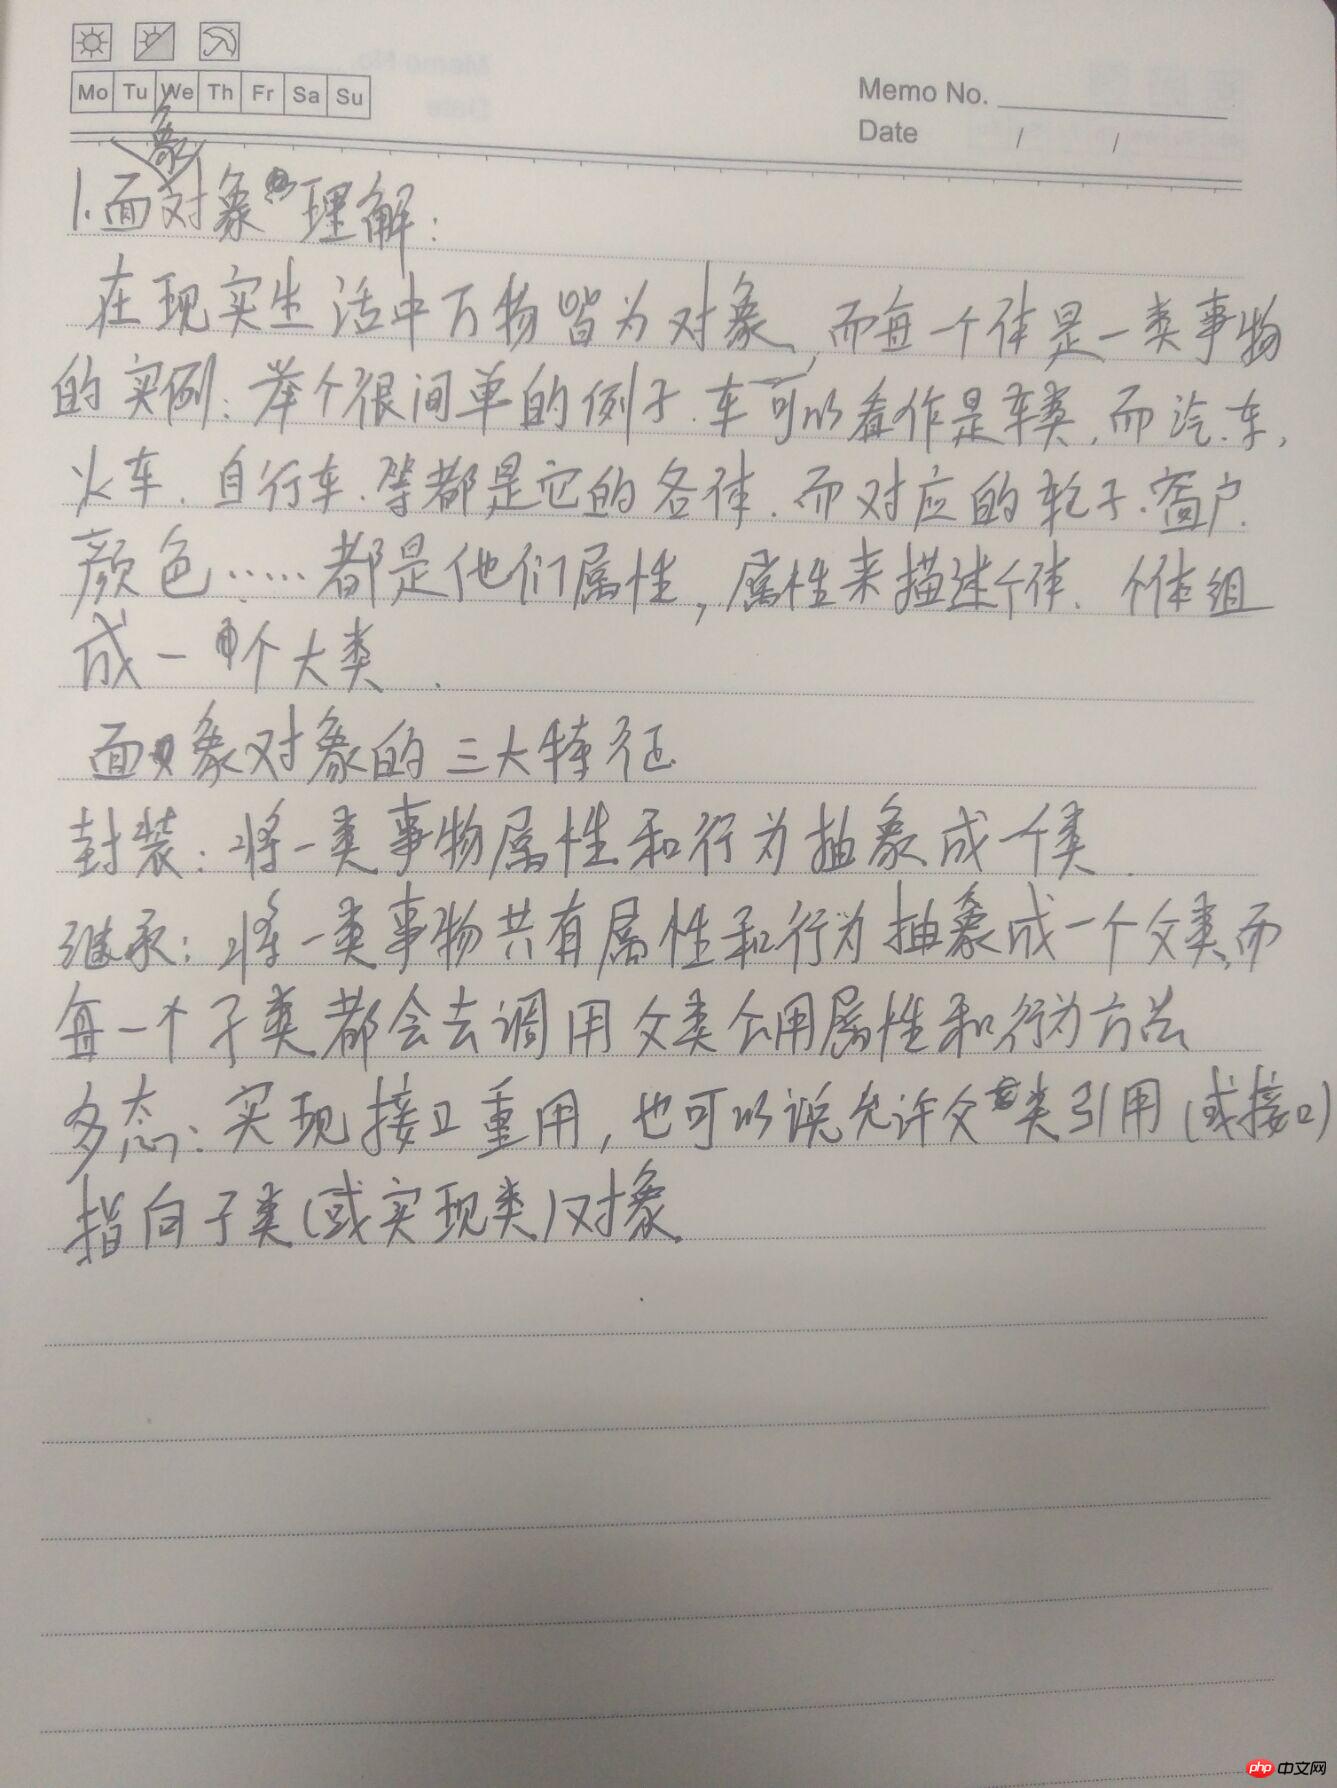 Mo Tu We Th Fr Sa Su
Memo No.
Date / /
象
1.面对象 理解:
在现实生活中万物皆为对象,而每一个体是一类事物
的实例:举个很间单的例子.车可以看作是车类.而汽车,
火车.自行车.等都是它的各体.而对应的轮子.窗户.
颜色……都是他们属性,属性来描述个体.个体组
成一个大类.
面象对象的三大特征
封装:将一类事物属性和行为抽象成一个类.
继承:将一类事物共有属性和行为抽象成一个父类,而
每一个子类都会去调用父类公用属性和行为方法
多态:实现接口重用,也可以说允许父类引用(或接口)
指向子类(或实现类)对象.
php 中文网